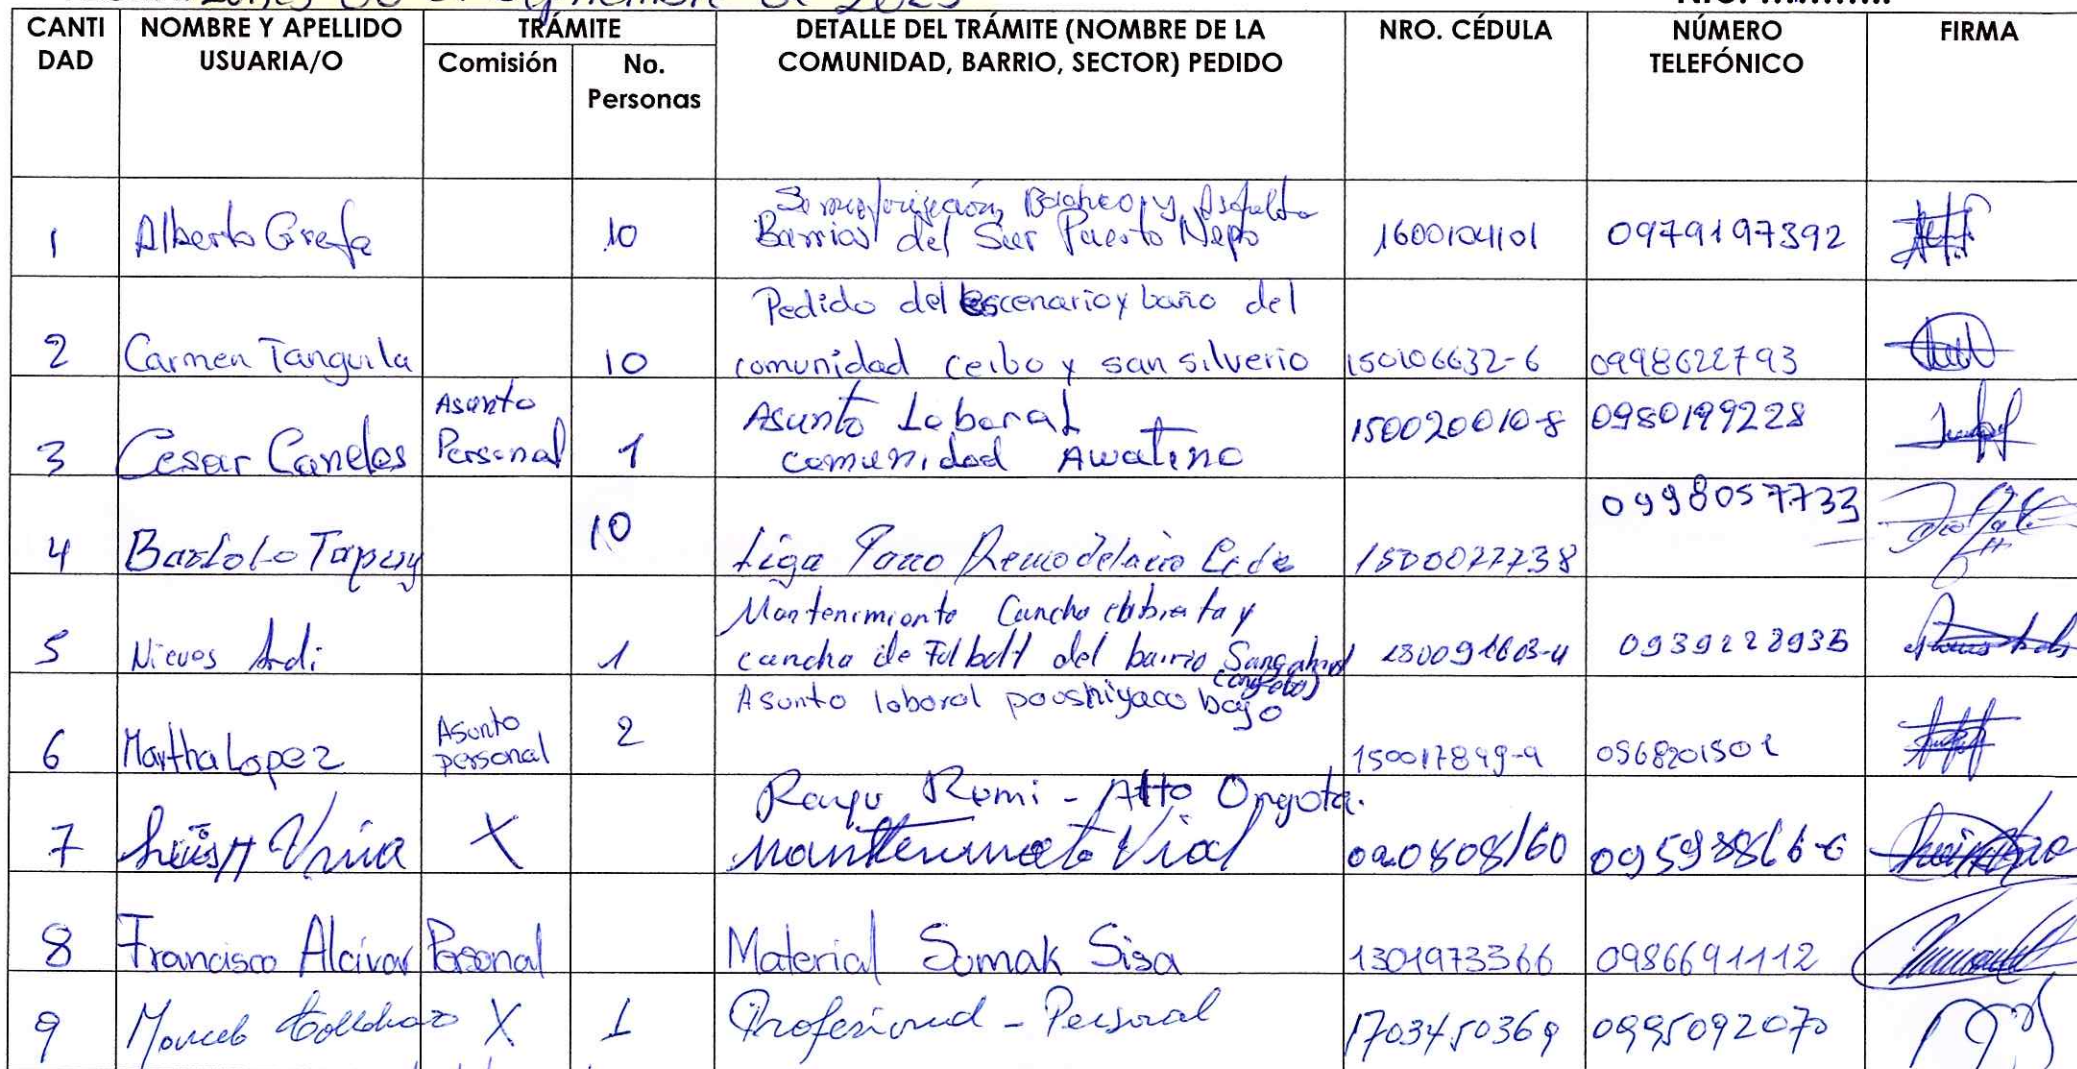 de 2025
CANTI DAD
NOMBRE Y APELLIDO USUARIA/O
TRÁMITE
Comisión
No. Personas
DETALLE DEL TRÁMITE (NOMBRE DE LA COMUNIDAD, BARRIO, SECTOR) PEDIDO
NRO. CÉDULA
NÚMERO TELEFÓNICO
FIRMA
1 Alberto Grefa 10
Bacheo y Asfalto
Barrios del Sur Puerto Napo 1600104101 0979197392
2 Carmen Tanguila 10
Pedido del escenario y baño del
comunidad ceibo y san silverio 150106632-6 0998622793
3 Cesar Canelos Asunto Personal 1
Asunto Laboral
comunidad Awatino 150020010-8 0980199228
4 Bartolo Tapuy 10 Liga 1500077738 0998057733
5 Nieves Andi 1
Mantenimiento Cancha cubierta y
cancha de Futboll del barrio 0939228935
6 Martha Lopez Asunto personal 2
Asunto laboral paushiyacu bajo
150017849-9 0968201501
7 X
Rumi - Alto Ongota.
Vial
8 Francisco Alcivar Personal Material Sumak Sisa 1301973366 0986691112
9 X 1 Profesional - Personal 1703450369 0995092070